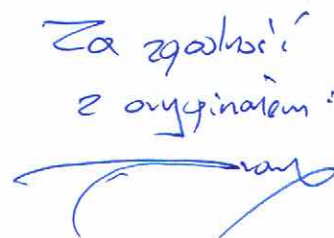 Za zgodność
z oryginałem: